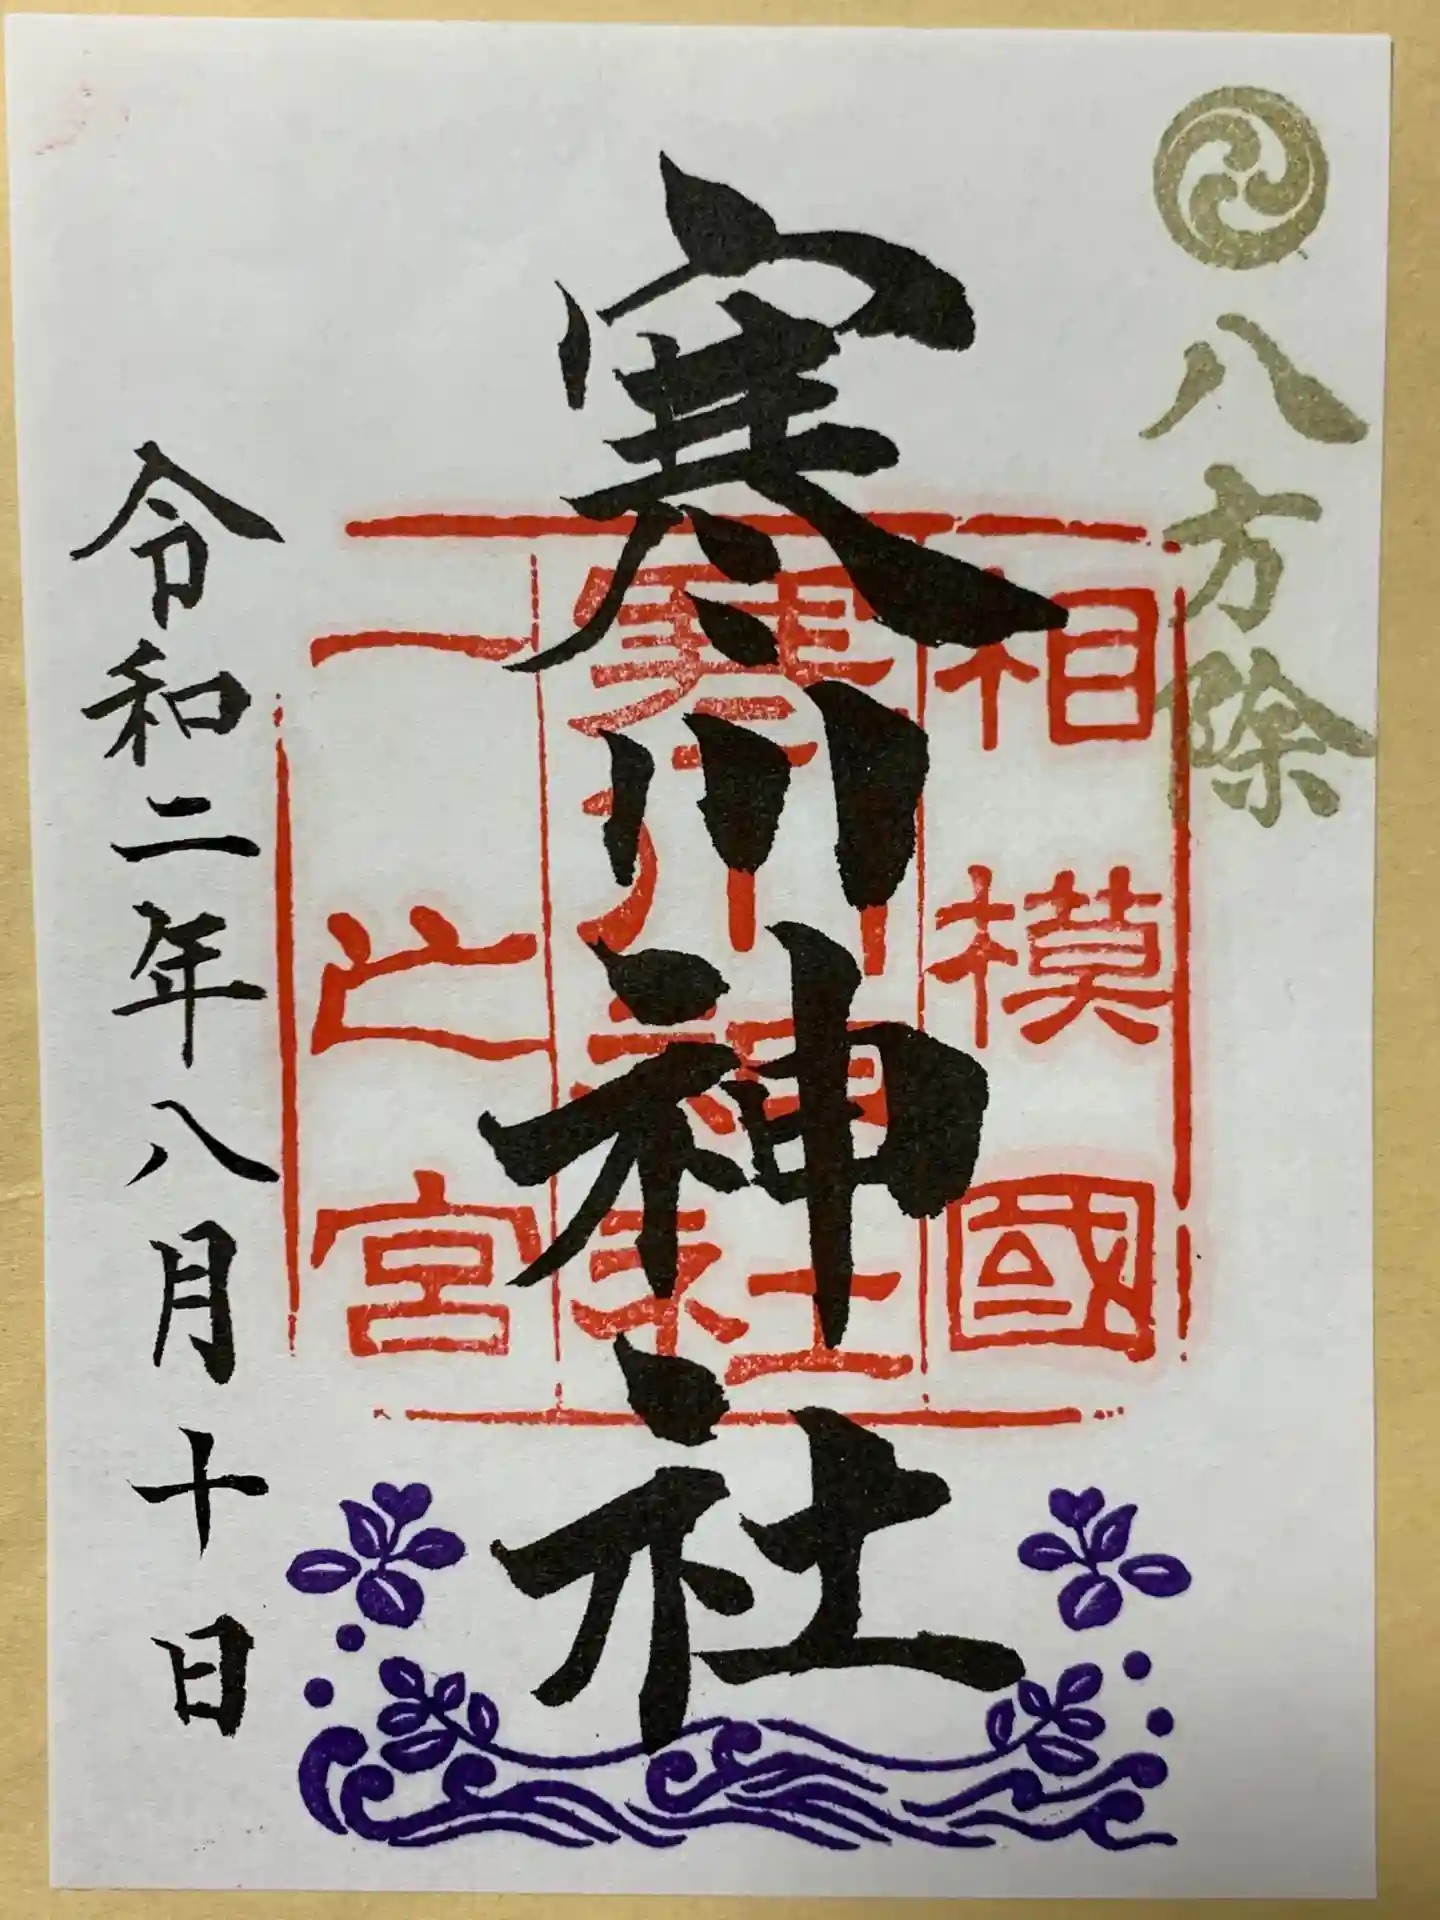 八方除
相模國
寒川神社
一之宮
寒川神社
令和二年八月十日